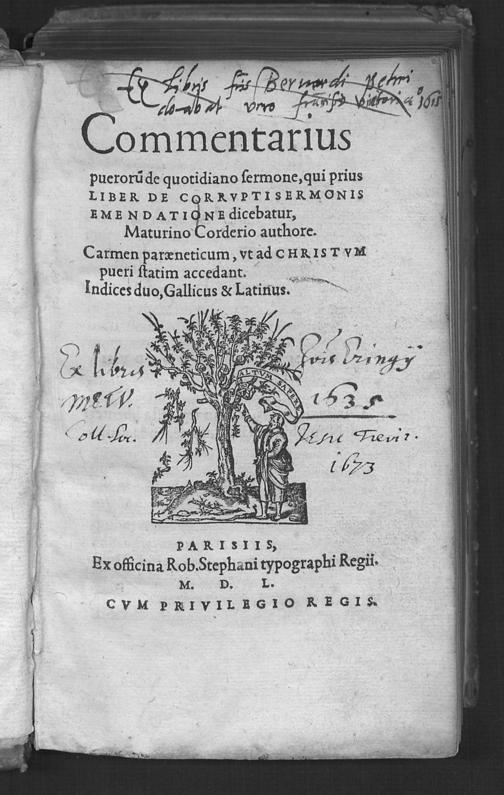 Ex Libris fris Bernardi Petri
donabat vero 1615
Commentarius
puerorũ de quotidiano ſermone, qui prius
LIBER DE CORRVPTI SERMONIS
EMENDATIONE dicebatur,
Maturino Corderio authore.
Carmen paræneticum, vt ad CHRISTVM
pueri ſtatim accedant.
Indices duo, Gallicus & Latinus.
ALTVM SAPER
Ex libris
1635
Coll. Soc. Jesu Trevir.
1673
PARISIIS,
Ex officina Rob. Stephani typographi Regii.
M. D. L.
CVM PRIVILEGIO REGIS.